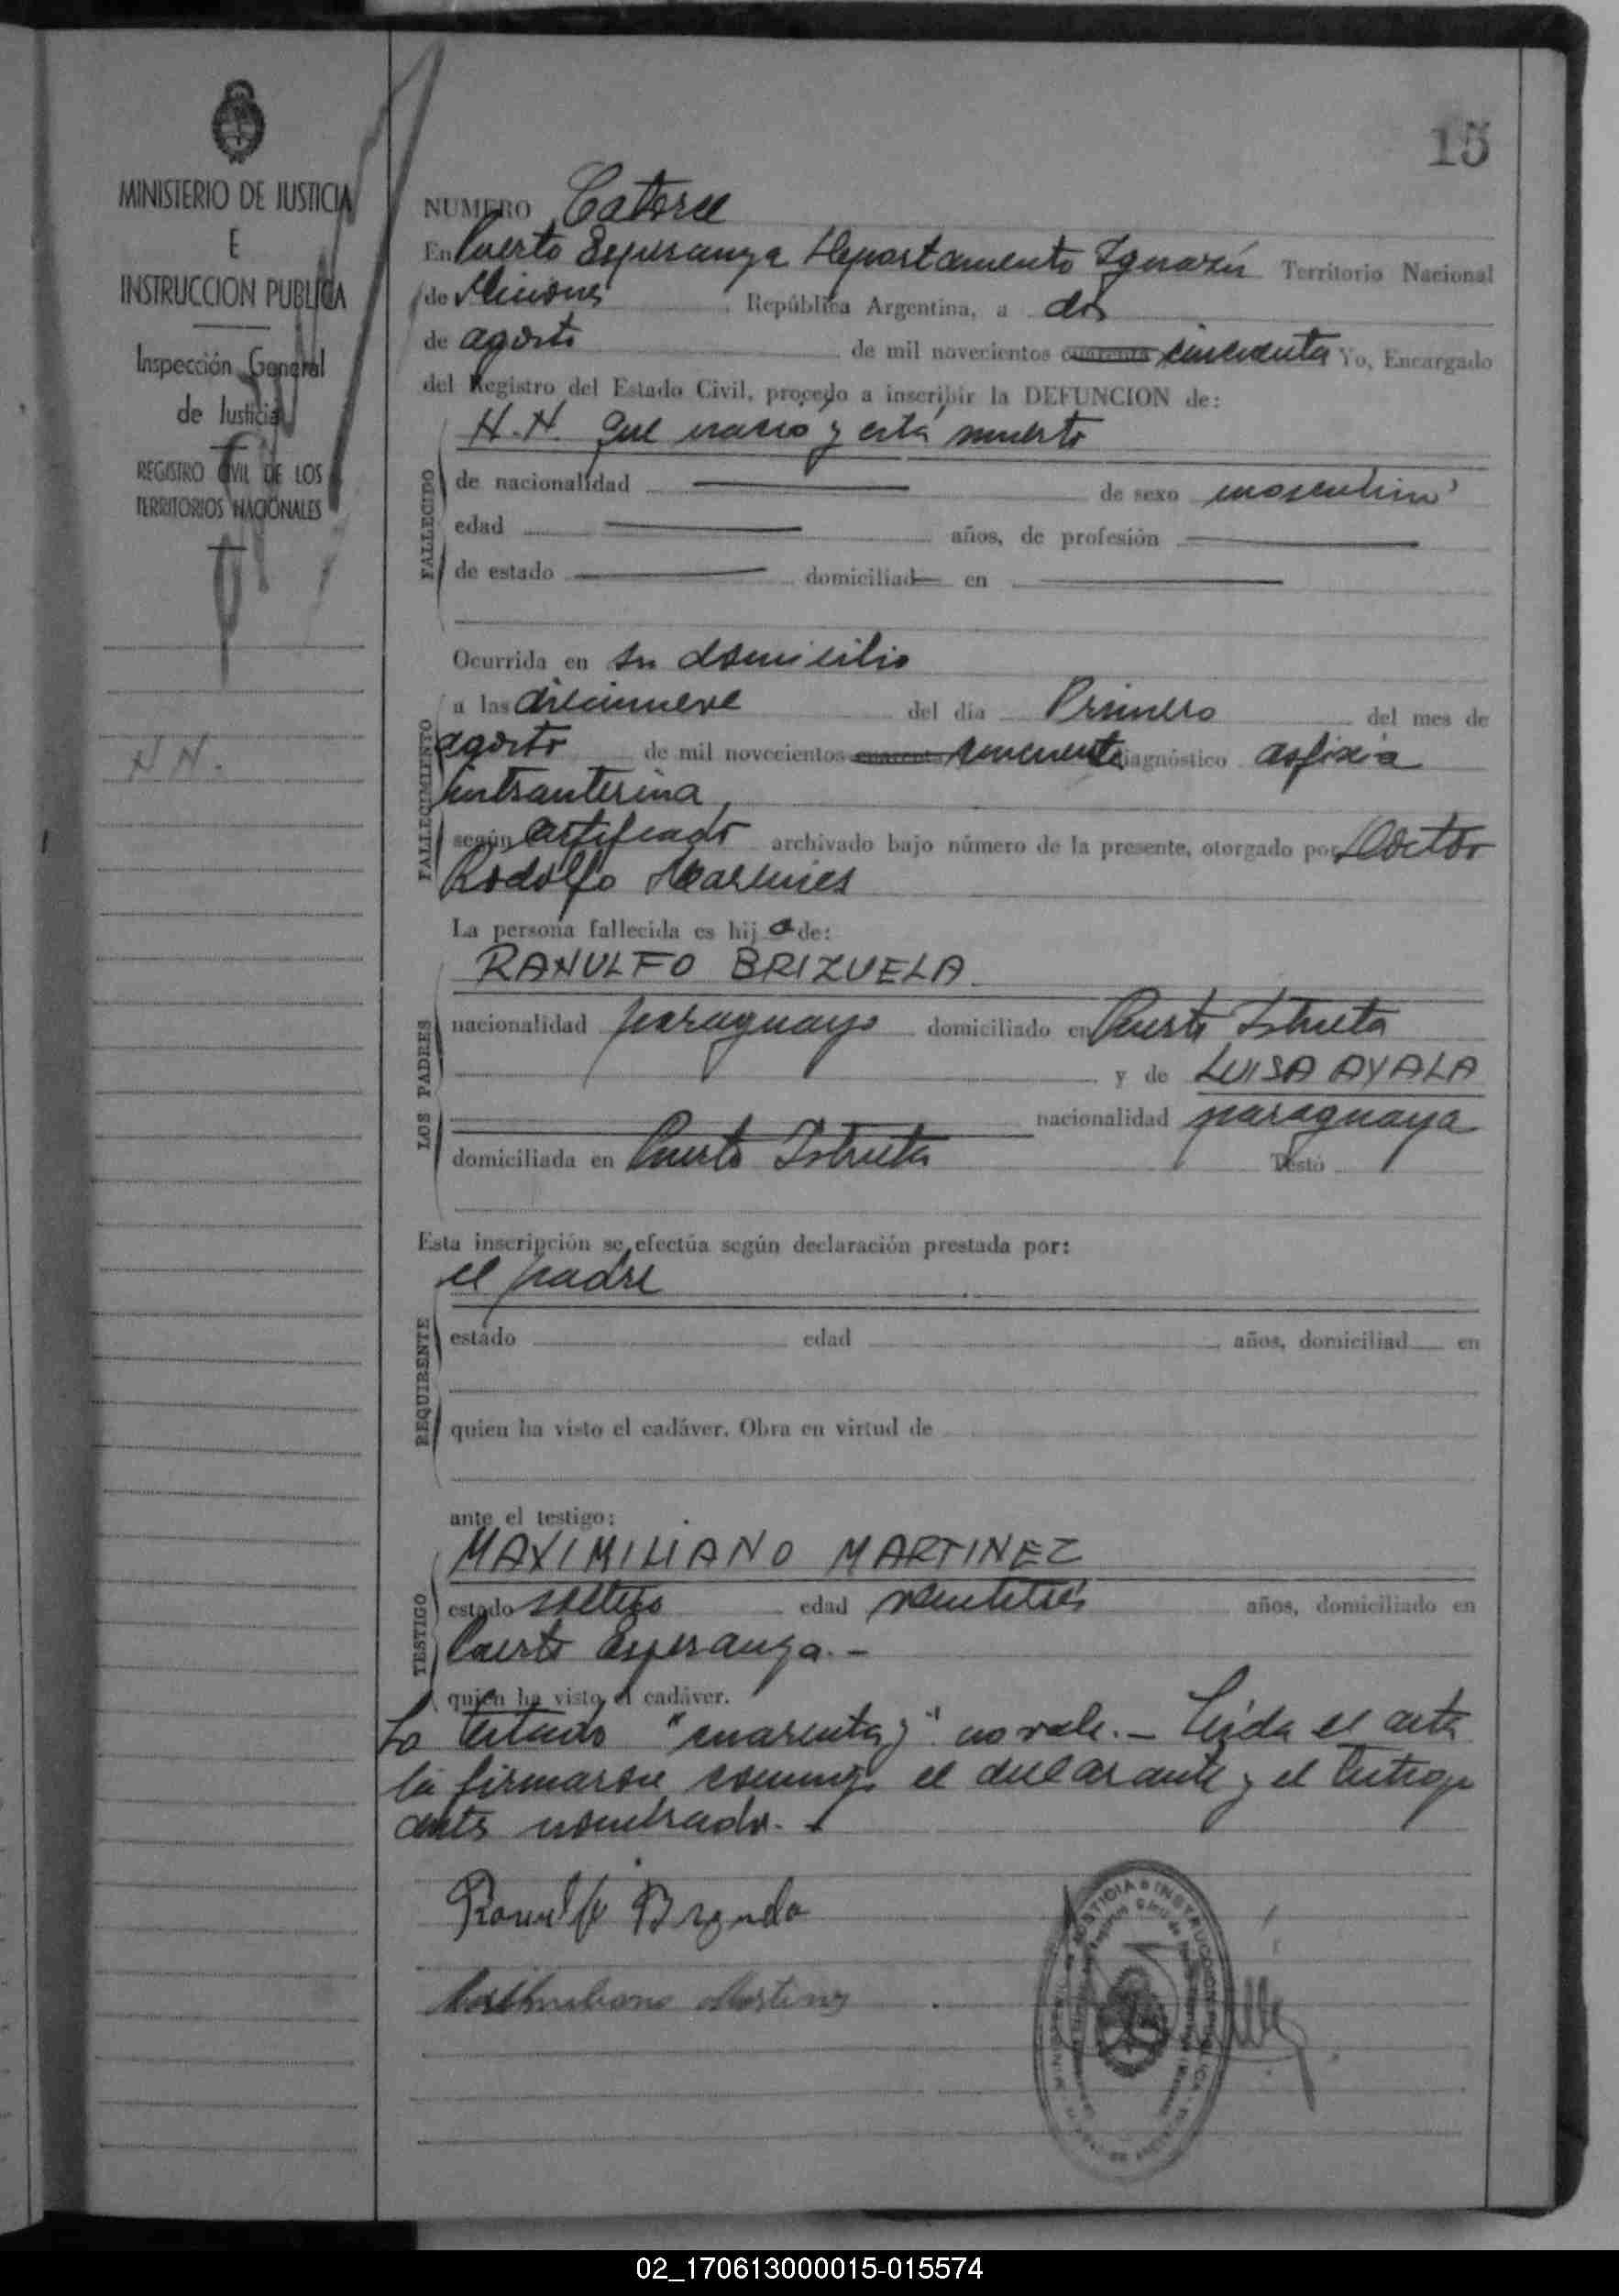 15
MINISTERIO DE JUSTICIA
E
INSTRUCCION PUBLICA
Inspección General
de Justicia
REGISTRO CIVIL DE LOS
TERRITORIOS NACIONALES
N N.
NUMERO Catorce
En Puerto Esperanza Departamento Iguazú Territorio Nacional
de Misiones República Argentina, a dos
de agosto de mil novecientos cuarenta cincuenta Yo, Encargado
del Registro del Estado Civil, procedo a inscribir la DEFUNCION de:
N.N. que nació y está muerto
FALLECIDO
de nacionalidad de sexo masculino
edad años, de profesión
de estado domiciliad en
Ocurrida en su domicilio
FALLECIMIENTO
a las diecinueve del día Primero del mes de
agosto de mil novecientos cuarenta cincuenta diagnóstico asfixia
intrauterina,
según certificado archivado bajo número de la presente, otorgado por Doctor
Rodolfo
La persona fallecida es hijo de:
RANULFO BRIZUELA
LOS PADRES
nacionalidad paraguayo domiciliado en Puerto Istueta
y de LUISA AYALA
nacionalidad paraguaya
domiciliada en Puerto Istueta Testó
Esta inscripción se efectúa según declaración prestada por:
el padre
REQUIRENTE
estado edad años, domiciliad en
quien ha visto el cadáver. Obra en virtud de
ante el testigo:
MAXIMILIANO MARTINEZ
TESTIGO
estado soltero edad veintitrés años, domiciliado en
Puerto Esperanza.-
quien ha visto el cadáver.
Lo testado "cuarenta y" no vale.- Leída el acta
la firmaron conmigo el declarante y el testigo
antes nombrado.
Ranulfo Brizuela
Maximiliano Martinez
02_170613000015-015574